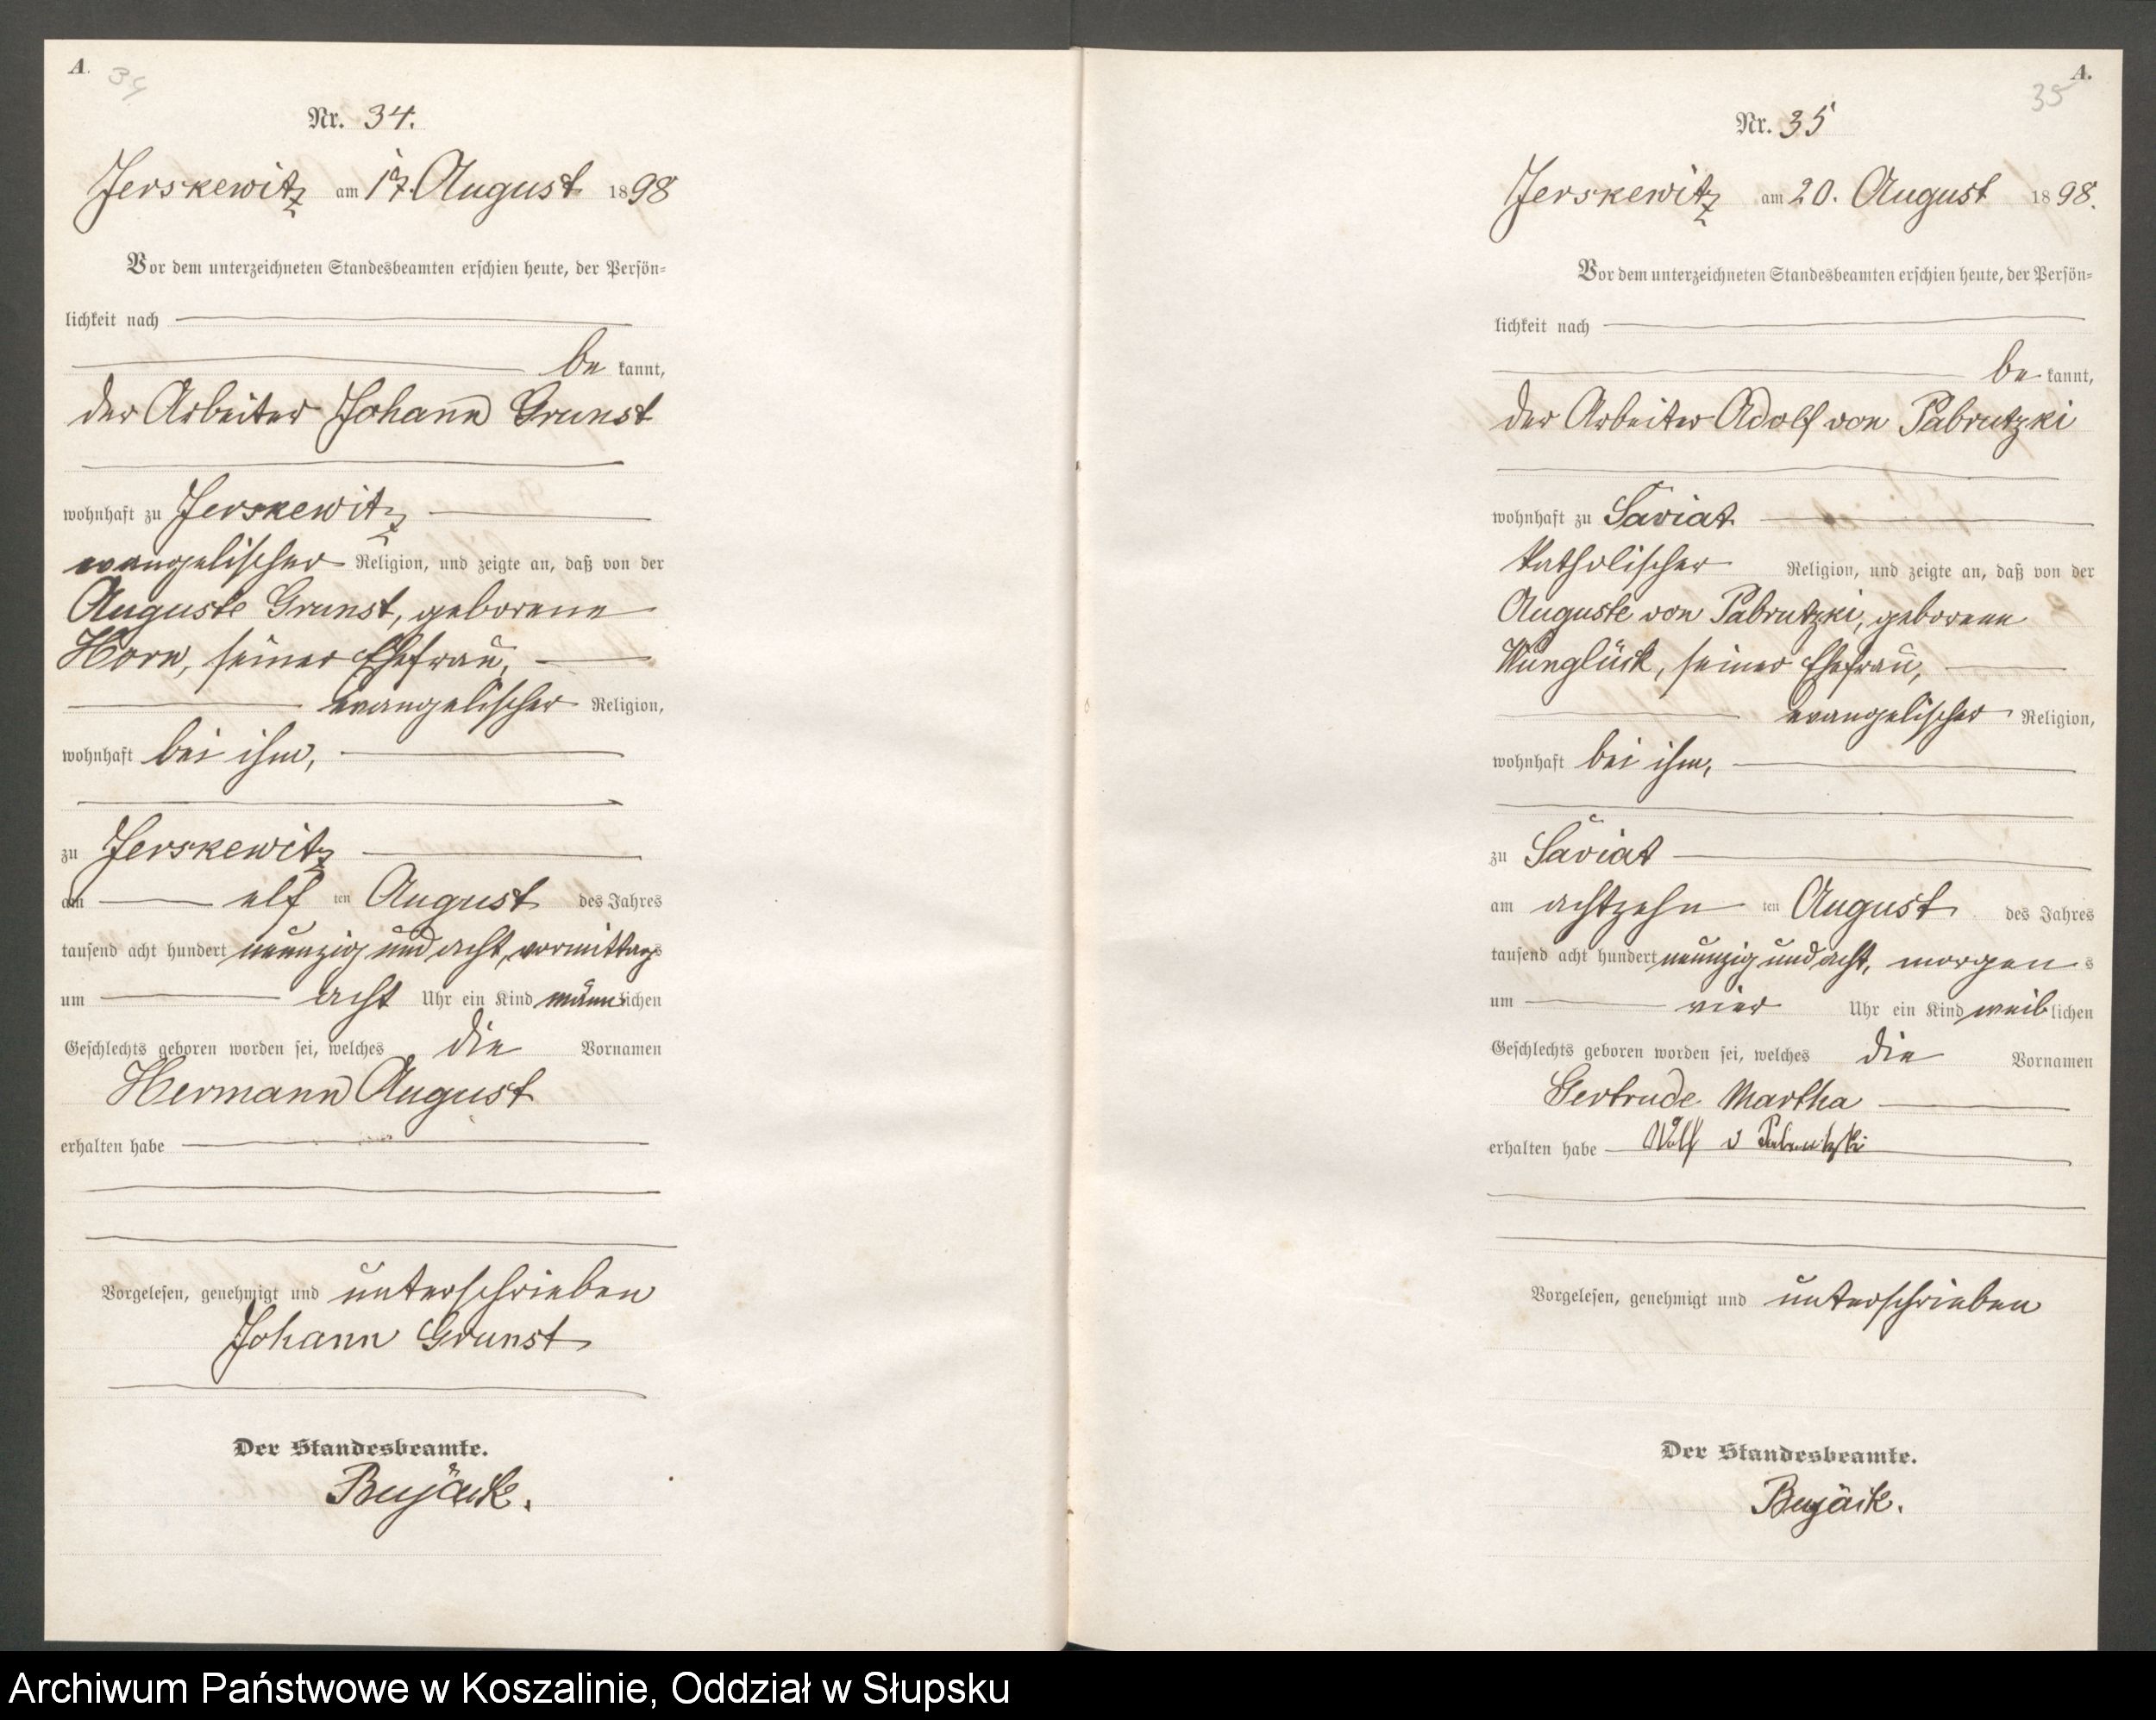 A. 34
Nr. 34.
Jerskewitz am 17. August 1898
Vor dem unterzeichneten Standesbeamten erschien heute, der Persön-
lichkeit nach
be kannt,
der Arbeiter Johann Grunst
wohnhaft zu Jerskewitz
evangelischer Religion, und zeigte an, daß von der
Auguste Grunst, geborene
Horn, seiner Ehefrau,
evangelischer Religion,
wohnhaft bei ihm,
zu Jerskewitz
am elf ten August des Jahres
tausend acht hundert neunzig und acht, vormittags
um acht Uhr ein Kind männlichen
Geschlechts geboren worden sei, welches die Vornamen
Hermann August
erhalten habe
Vorgelesen, genehmigt und unterschrieben
Johann Grunst
Der Standesbeamte.
Bujäck.
A.
35
Nr. 35
Jerskewitz am 20. August 1898.
Vor dem unterzeichneten Standesbeamten erschien heute, der Persön-
lichkeit nach
be kannt,
der Arbeiter Adolf von Pabrutzki
wohnhaft zu Saviat
katholischer Religion, und zeigte an, daß von der
Auguste von Pabrutzki, geborene
Wunglück, seiner Ehefrau,
evangelischer Religion,
wohnhaft bei ihm,
zu Saviat
am achtzehn ten August des Jahres
tausend acht hundert neunzig und acht, morgens
um vier Uhr ein Kind weiblichen
Geschlechts geboren worden sei, welches die Vornamen
Gertrude Martha
erhalten habe
Vorgelesen, genehmigt und unterschrieben
Der Standesbeamte.
Bujäck.
Archiwum Państwowe w Koszalinie, Oddział w Słupsku